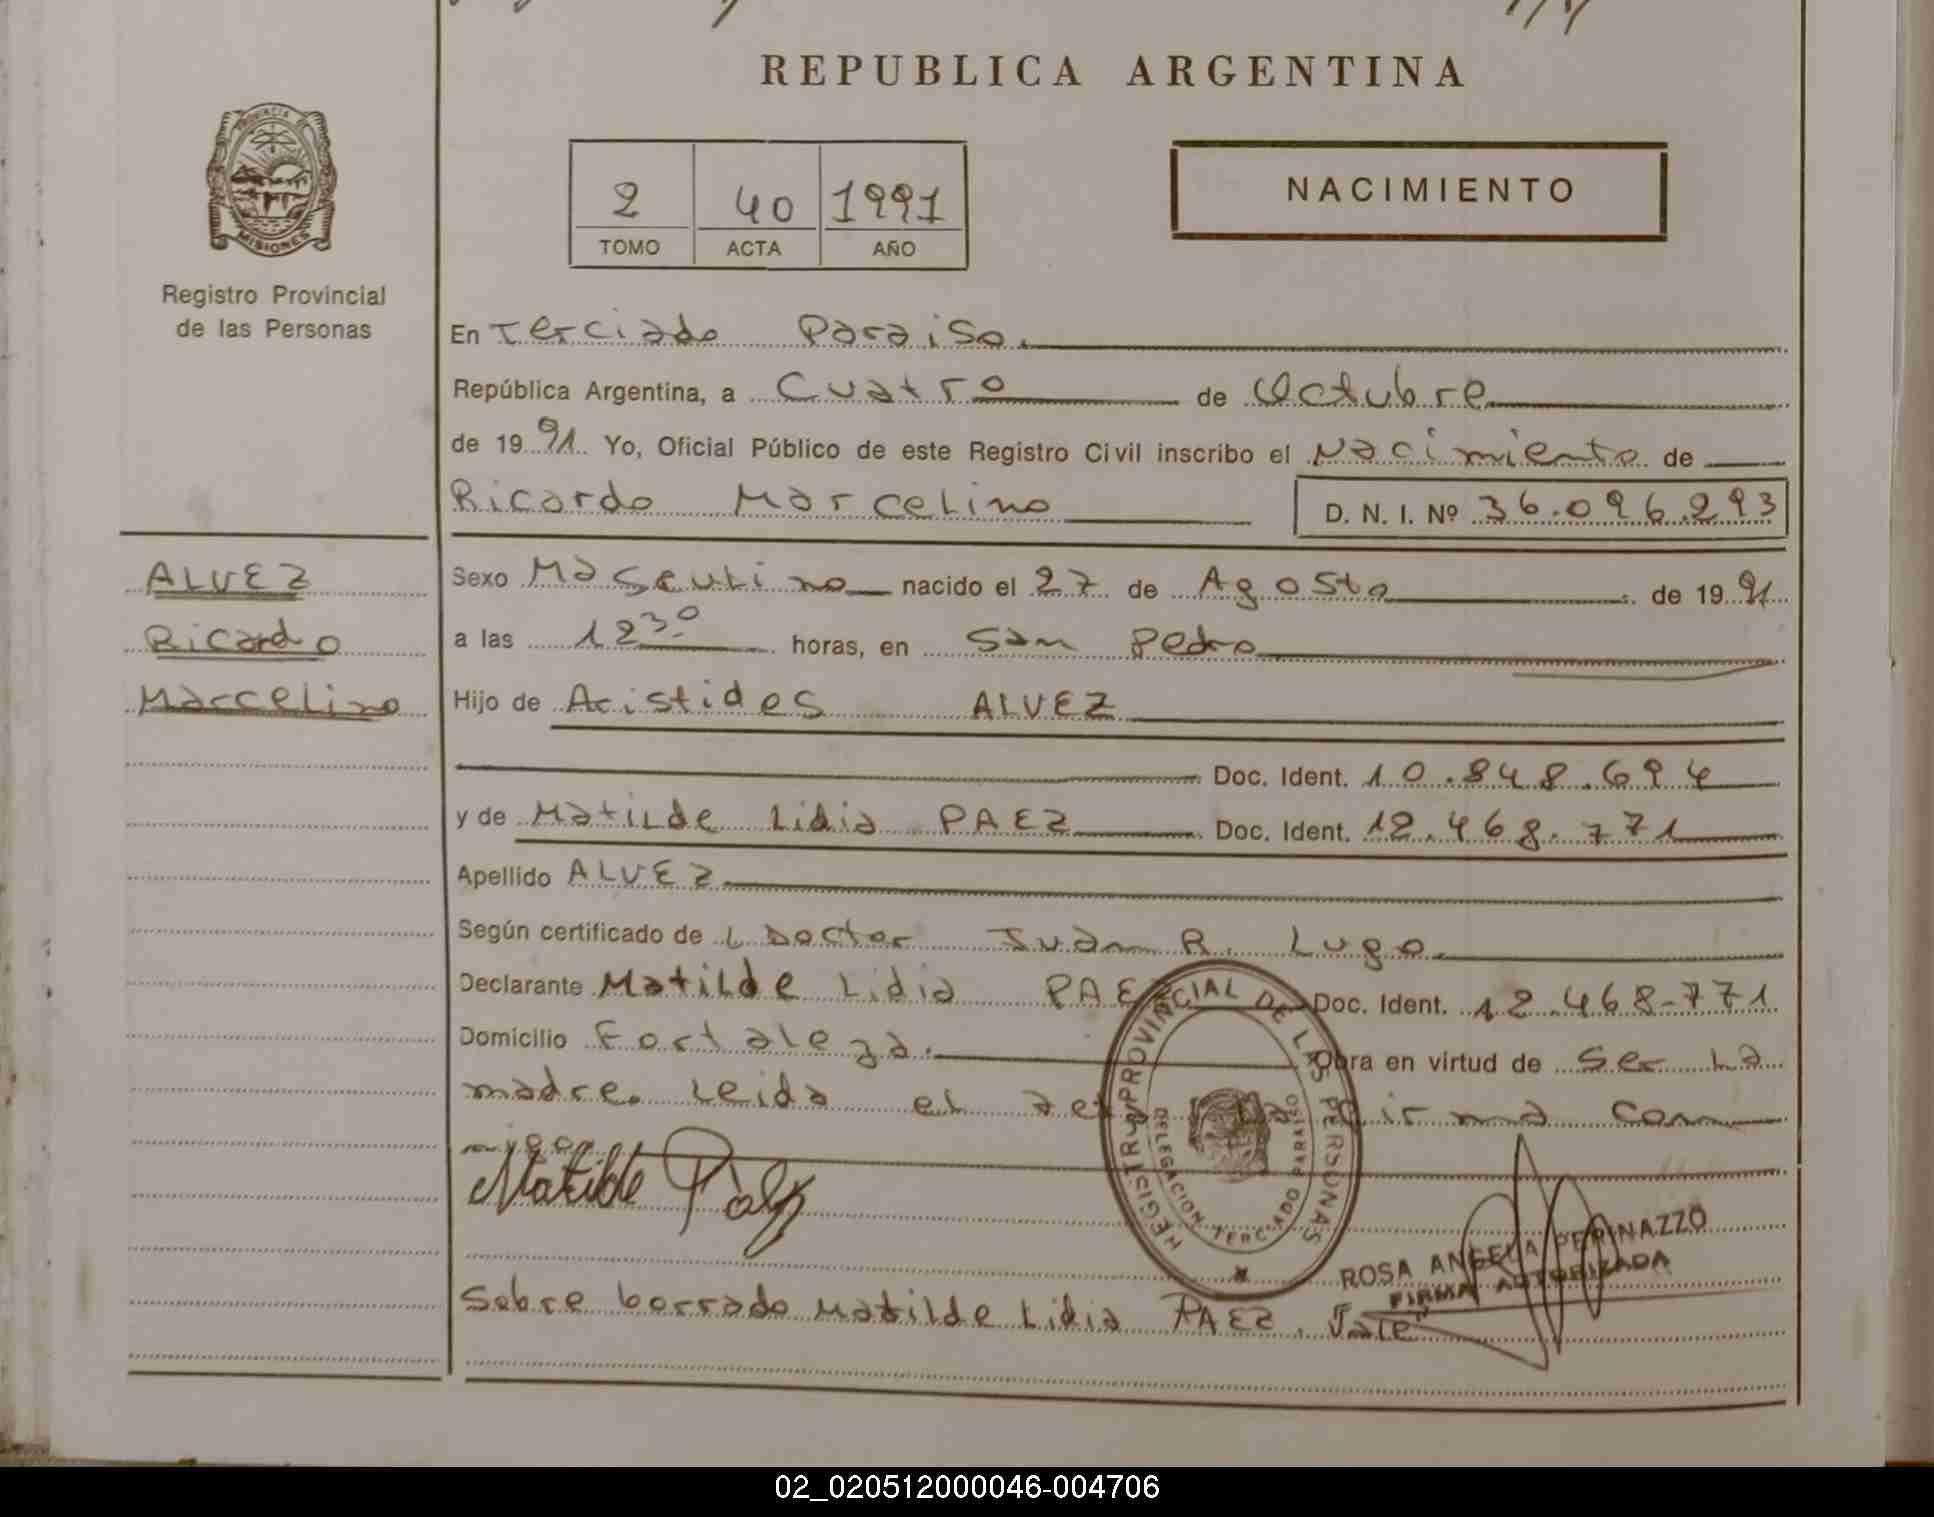 REPUBLICA ARGENTINA
PROVINCIA DE
MISIONES
Registro Provincial
de las Personas
2 40 1991
TOMO ACTA AÑO
NACIMIENTO
En Terciado Paraiso.
República Argentina, a Cuatro de Octubre
de 1991. Yo, Oficial Público de este Registro Civil inscribo el Nacimiento de
Ricardo Marcelino D. N. I. Nº 36.096.293
ALVEZ
Ricardo
Marcelino
Sexo Masculino nacido el 27 de Agosto de 1991
a las 12 30 horas, en San Pedro
Hijo de Aristides ALVEZ
Doc. Ident. 10.848.694
y de Matilde Lidia PAEZ Doc. Ident. 12.468.771
Apellido ALVEZ
Según certificado de L Doctor Juan R. Lugo
Declarante Matilde Lidia PAE Doc. Ident. 12.468-771
Domicilio Fortaleza. Obra en virtud de Ser La
madre. Leida el firma con
migo
Matilde Páez
REGISTRO PROVINCIAL DE LAS PERSONAS
DELEGACION TERCIADO PARAISO
ROSA ANGELA PERINAZZO
FIRMA AUTORIZADA
Sobre borrado Matilde Lidia PAEZ. Vale"
02_020512000046-004706